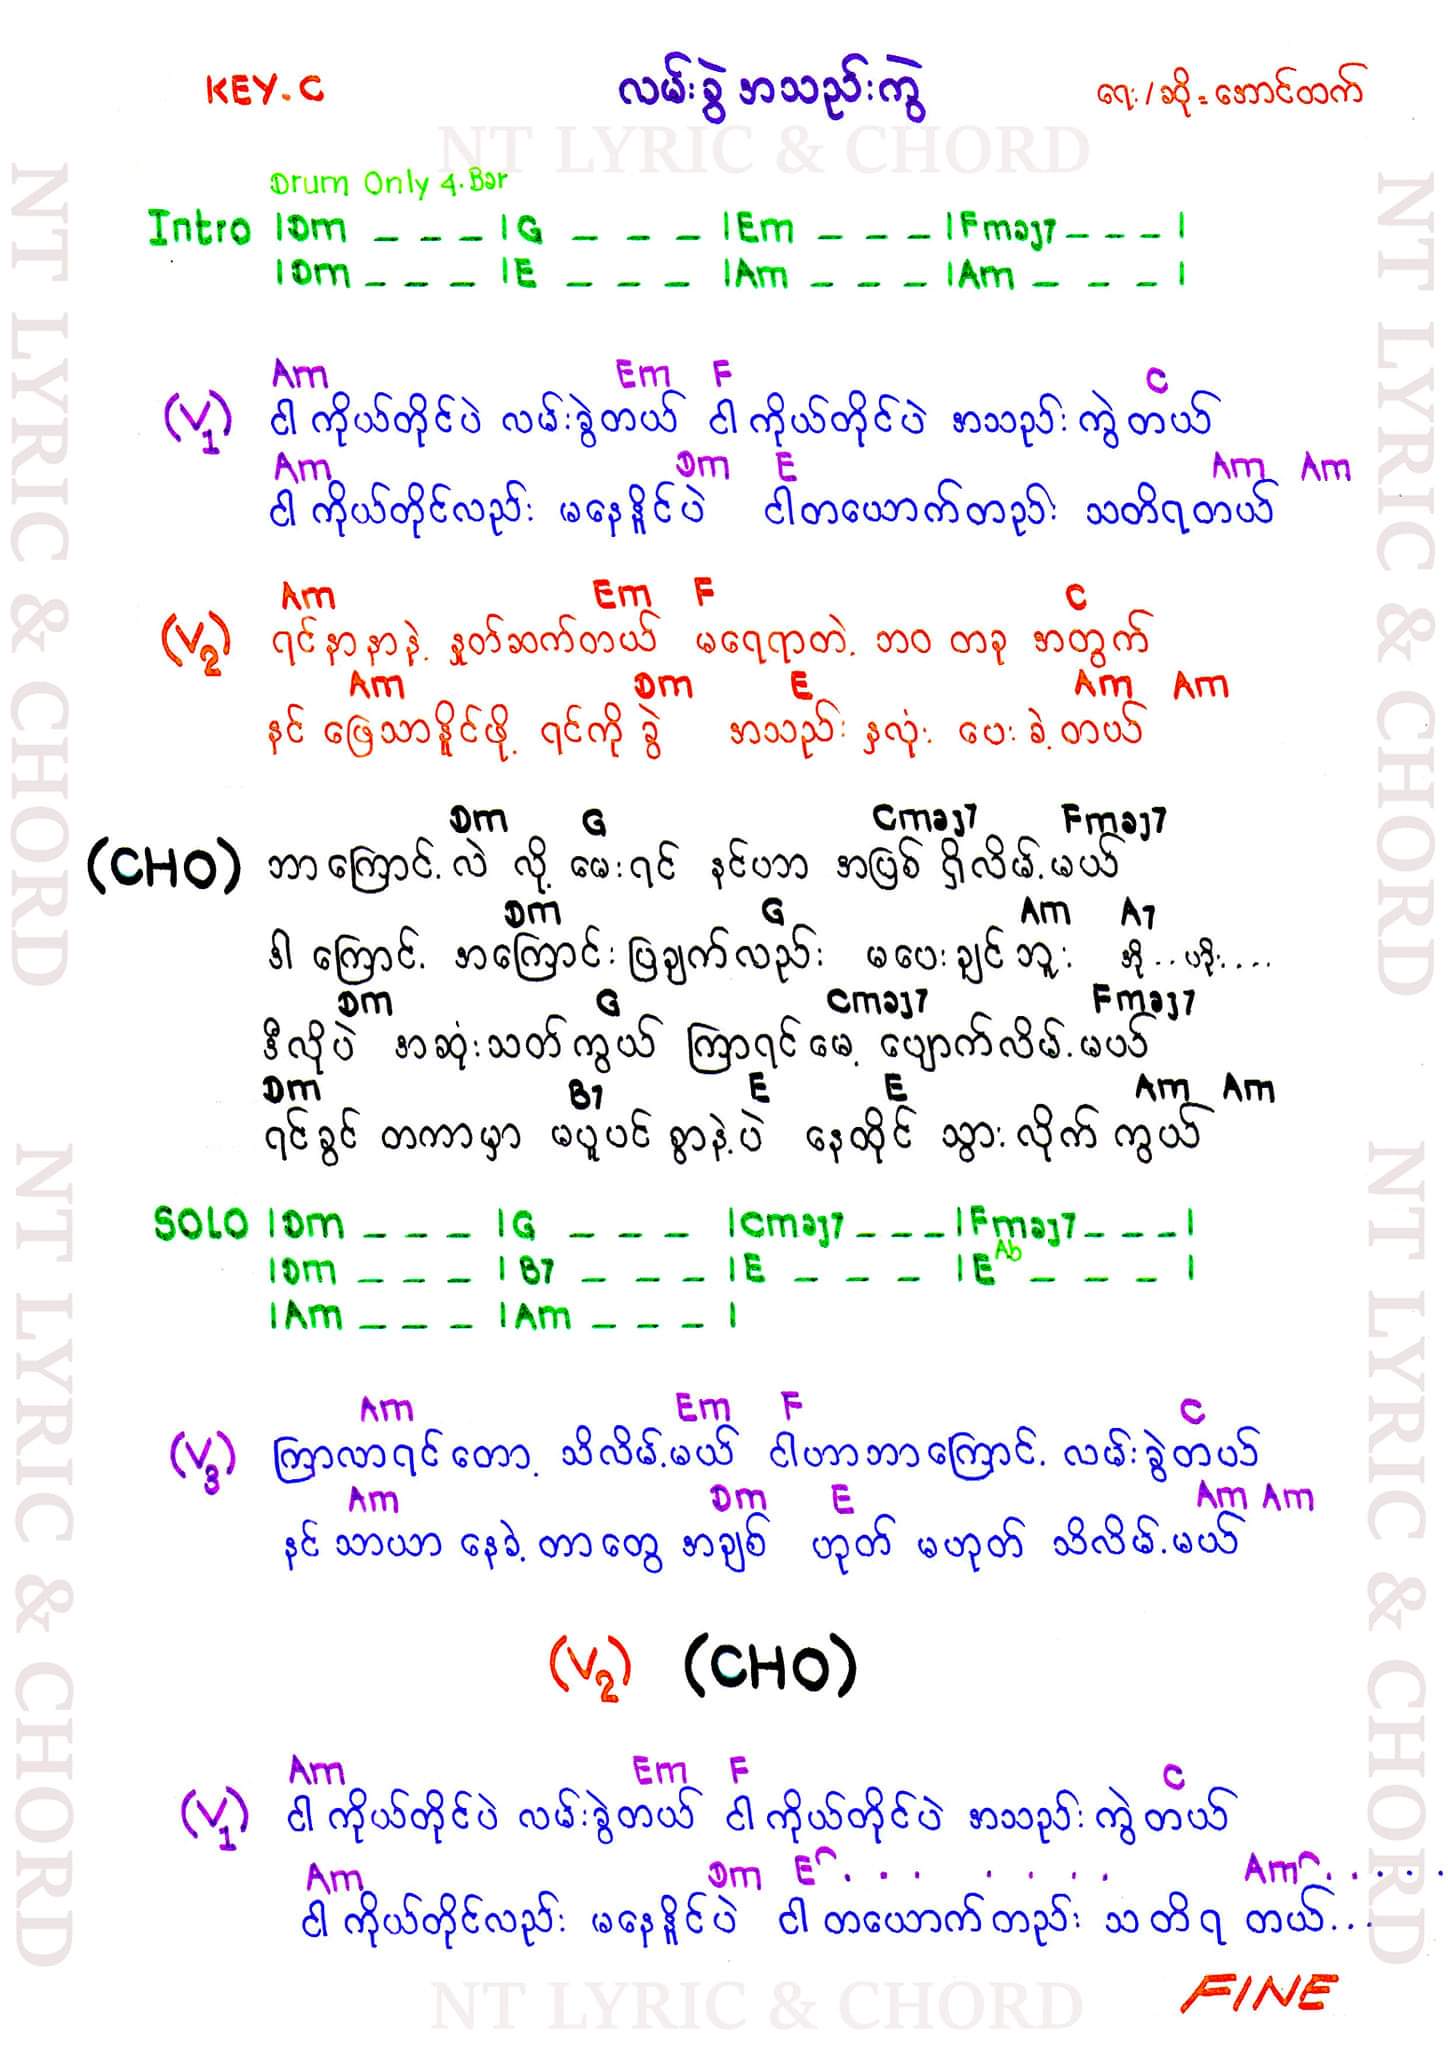 KEY.C လမ်းခွဲ အသည်းကွဲ ရေး/ဆို = အောင်ထက်
NT LYRIC & CHORD
Drum Only 4.Bar
Intro |Dm _ _ _ |G _ _ _ |Em _ _ _ |Fmaj7 _ _ _ |
|Dm _ _ _ |E _ _ _ |Am _ _ _ |Am _ _ _ |
Am Em F C
(V1) ငါ ကိုယ်တိုင်ပဲ လမ်းခွဲတယ် ငါ ကိုယ်တိုင်ပဲ အသည်း ကွဲ တယ်
Am Dm E Am Am
ငါ ကိုယ်တိုင်လည်း မနေနိူင်ပဲ ငါတယောက်တည်း သတိရတယ်
Am Em F C
(V2) ရင်နာနာနဲ့ နှုတ်ဆက်တယ် မရေရာတဲ့ ဘဝ တခု အတွက်
Am Dm E Am Am
နင် ဖြေသာနိူင်ဖို့ ရင်ကို ခွဲ အသည်း နှလုံး ပေး ခဲ့ တယ်
Dm G Cmaj7 Fmaj7
(CHO) ဘာ ကြောင့် လဲ လို့ မေး ရင် နင်ပဘာ အဖြစ် ရှိလိမ့် မယ်
Dm G Am A7
ဒါ ကြောင့် အကြောင်း ပြချက်လည်း မပေးချင် ဘူး အို .. ဟိုး....
Dm G Cmaj7 Fmaj7
ဒီလိုပဲ အဆုံးသတ် ကွယ် ကြာရင် မေ့ ပျောက်လိမ့် မယ်
Dm B7 E E Am Am
ရင်ခွင် တကာမှာ မပူပင် စွာနဲ့ပဲ နေထိုင် သွား လိုက် ကွယ်
SOLO |Dm _ _ _ |G _ _ _ |Cmaj7 _ _ _ |Fmaj7 _ _ _ |
|Dm _ _ _ |B7 _ _ _ |E _ _ _ |E Ab _ _ _ |
|Am _ _ _ |Am _ _ _ |
Am Em F C
(V3) ကြာလာရင် တော့ သိလိမ့် မယ် ငါဟာဘာ ကြောင့် လမ်း ခွဲ တယ်
Am Dm E Am Am
နင် သာယာ နေခဲ့ တာတွေ အချစ် ဟုတ် မဟုတ် သိလိမ့် မယ်
(V2) (CHO)
Am Em F C
(V1) ငါ ကိုယ်တိုင်ပဲ လမ်းခွဲတယ် ငါ ကိုယ်တိုင်ပဲ အသည်း ကွဲ တယ်
Am Dm E . . . . . . . Am . . . . .
ငါ ကိုယ်တိုင်လည်း မနေနိူင်ပဲ ငါ တယောက်တည်း သတိရ တယ်...
FINE
NT LYRIC & CHORD
NT LYRIC & CHORD
NT LYRIC & CHORD
NT LYRIC & CHORD
NT LYRIC & CHORD